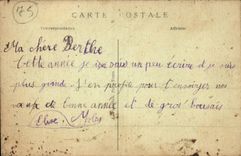 75
CARTE POSTALE
Correspondance
Adresse
Ma chère Berthe
Cette année je sais un peu écrire et je suis
plus grande. J'en profite pour t'envoyer nos
vœux de bonne année et de gros baisers